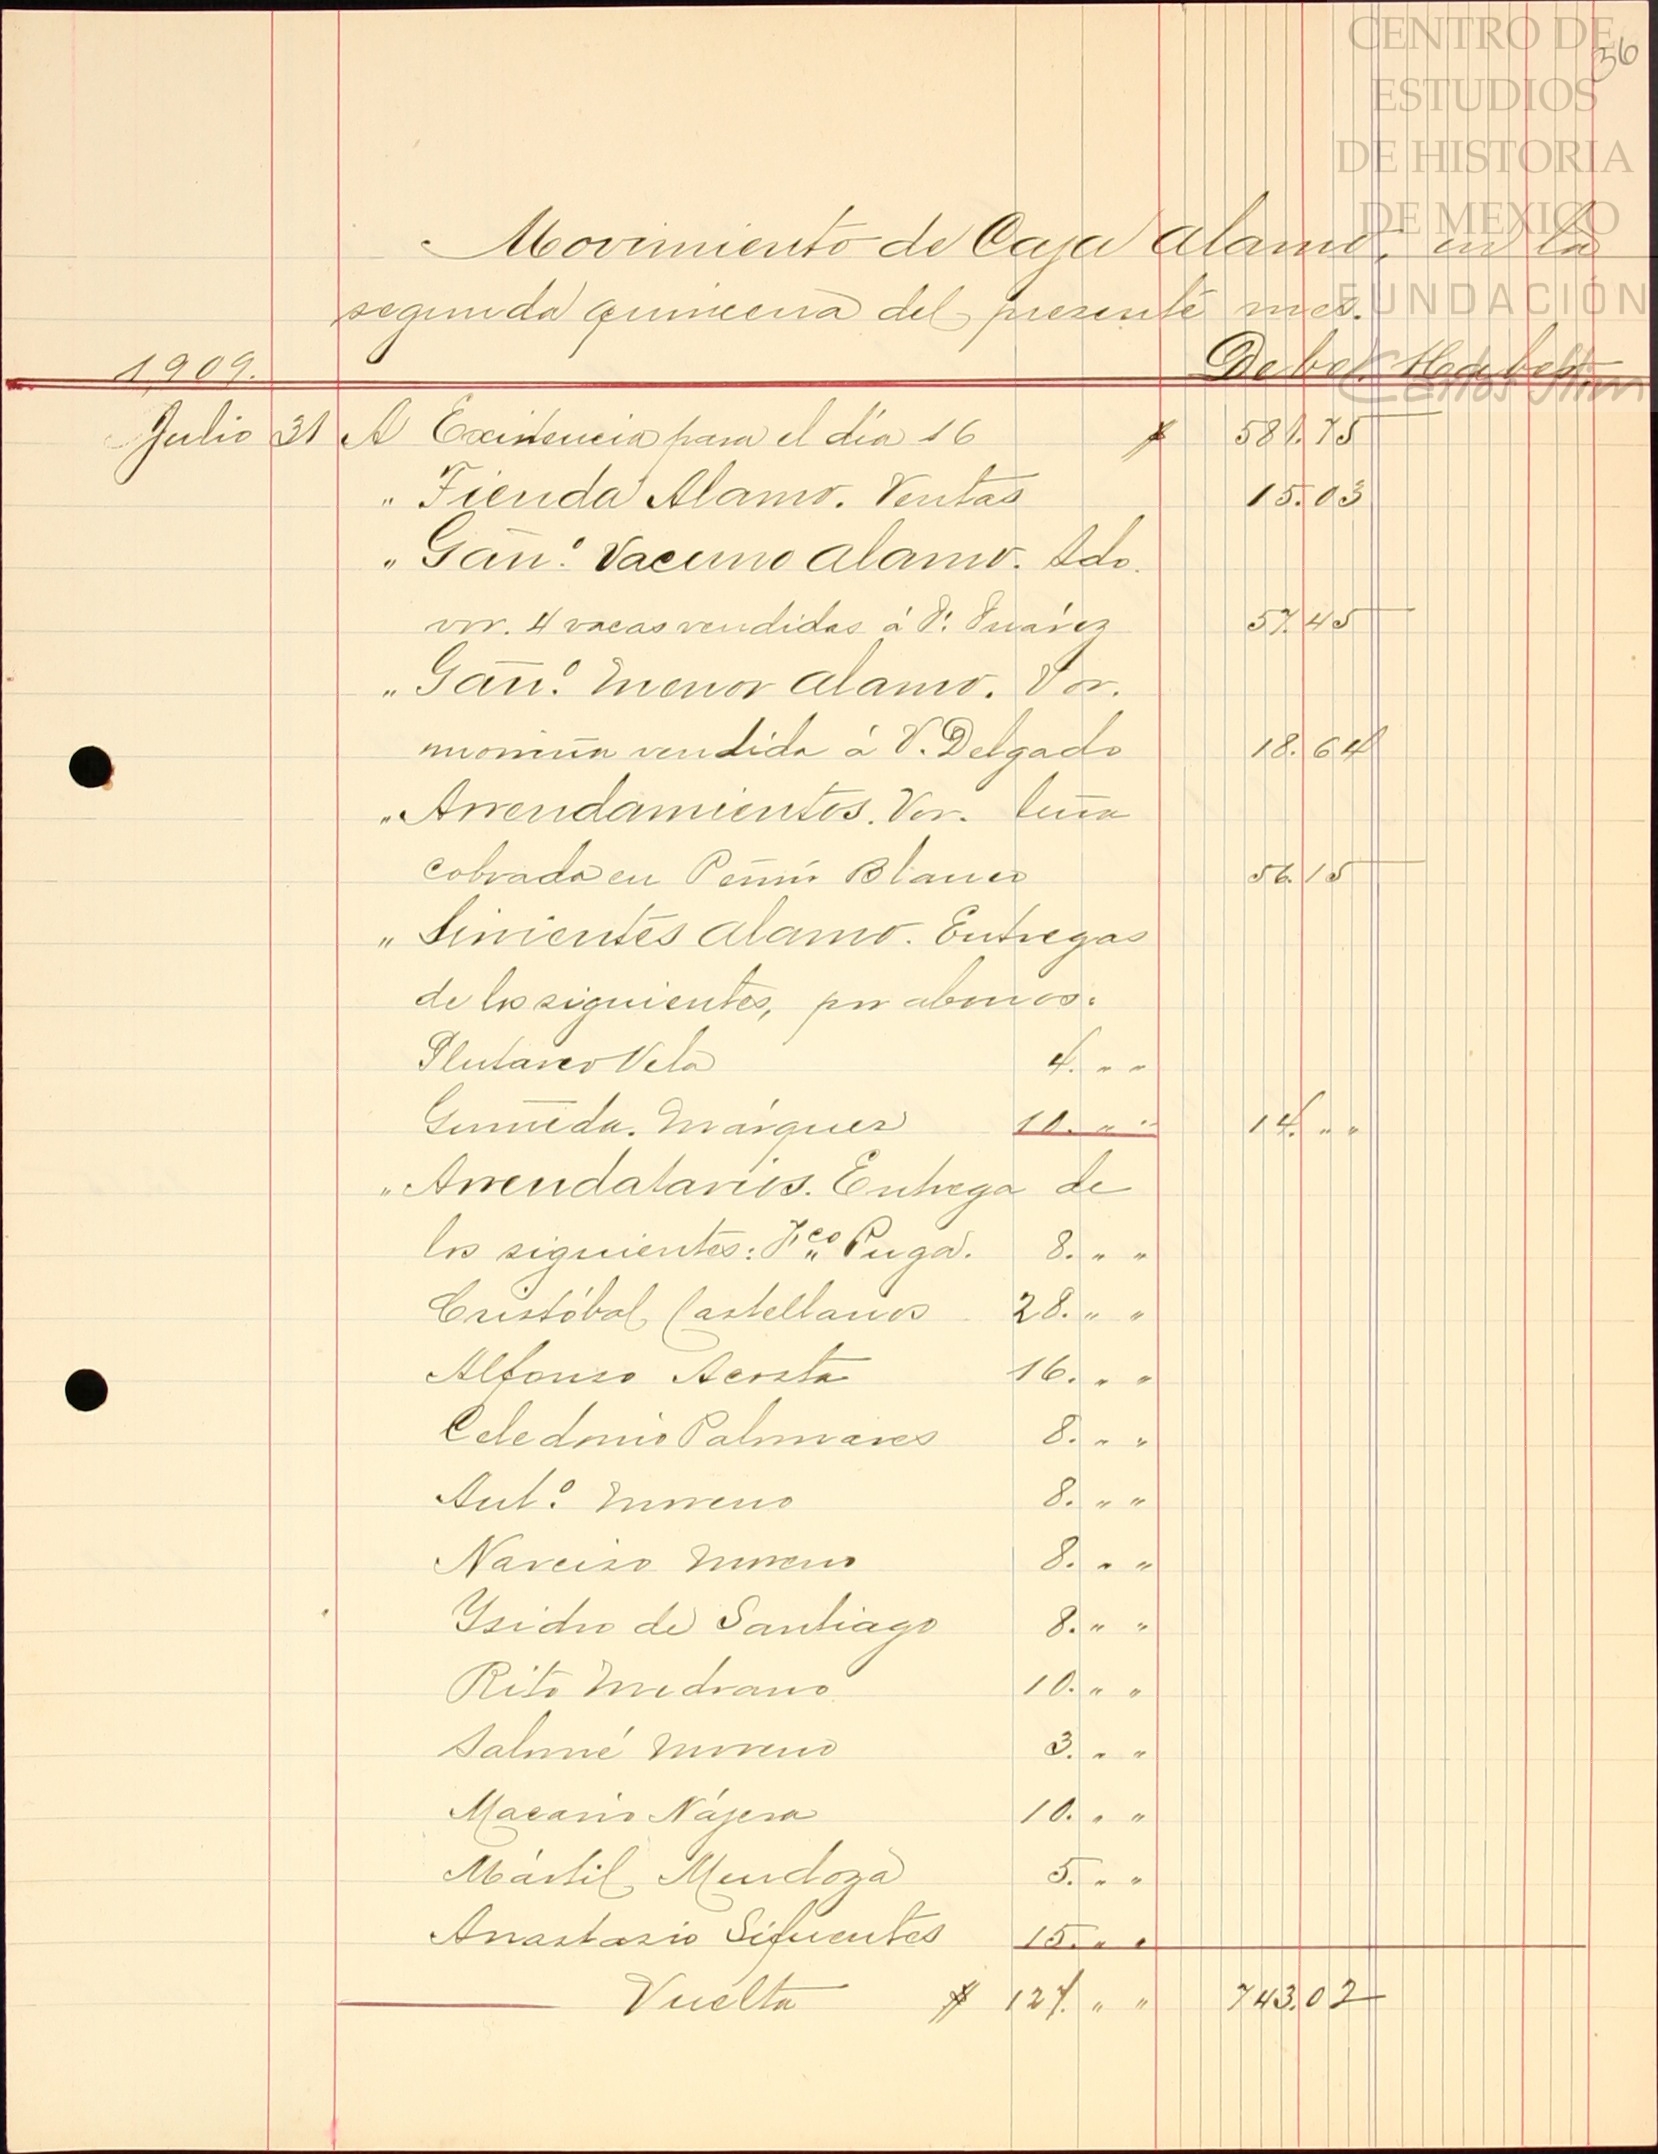 CENTRO DE
ESTUDIOS
DE HISTORIA
DE MEXICO
FUNDACIÓN
Carlos Slim
36
Movimiento de Caja Alamo, en la
segunda quincena del presente mes.
1909. Debe. Haber.
Julio 31 A Existencia para el día 16 $ 581.75
" Tienda Alamo. Ventas 15.03
" Gan̄.º Vacuno Alamo. Sdo.
vr. 4 vacas vendidas á P. Suárez 57.45
" Gan̄.º Menor Alamo. Vor.
vendida á V. Delgado 18.64
" Arrendamientos. Vor. leña
cobrada en Peñón Blanco 56.15
" Sirvientes Alamo. Entregas
de los siguientes, por abonos:
Plutarco Vela 4. " "
Gumeda. Márquez 10. " " 14. " "
" Arrendatarios. Entrega de
los siguientes: Fco. Puga. 8. " "
Cristóbal Castellanos 28. " "
Alfonso Acosta 16. " "
Celedonio Palomares 8. " "
Ant.º Moreno 8. " "
Narciso Moreno 8. " "
Ysidro de Santiago 8. " "
Rito Medrano 10. " "
Salomé Moreno 3. " "
Macario Nájera 10. " "
Mártil Mendoza 5. " "
Anastasio Sifuentes 15. " "
Vuelta $ 127. " " 743.02